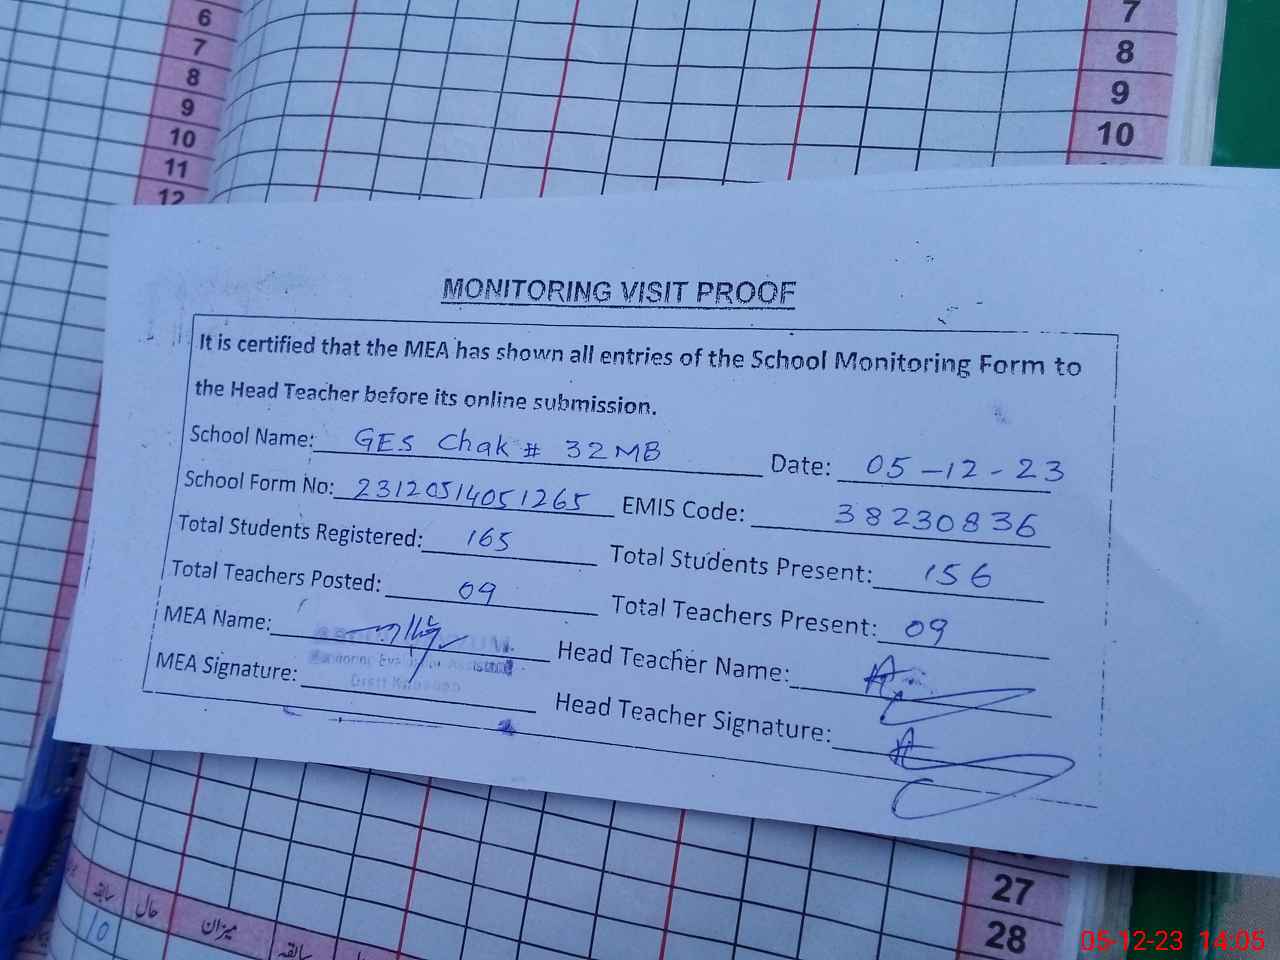 6
7
8
9
10
11
12
7
8
9
10
MONITORING VISIT PROOF
It is certified that the MEA has shown all entries of the School Monitoring Form to
the Head Teacher before its online submission.
School Name: GES Chak # 32MB Date: 05-12-23
School Form No: 23120514051265 EMIS Code: 38230836
Total Students Registered: 165 Total Students Present: 156
Total Teachers Posted: 09 Total Teachers Present: 09
MEA Name: Head Teacher Name:
MEA Signature: Head Teacher Signature:
27
28
سابقہ حال میزان سابقہ
10
05-12-23 14:05